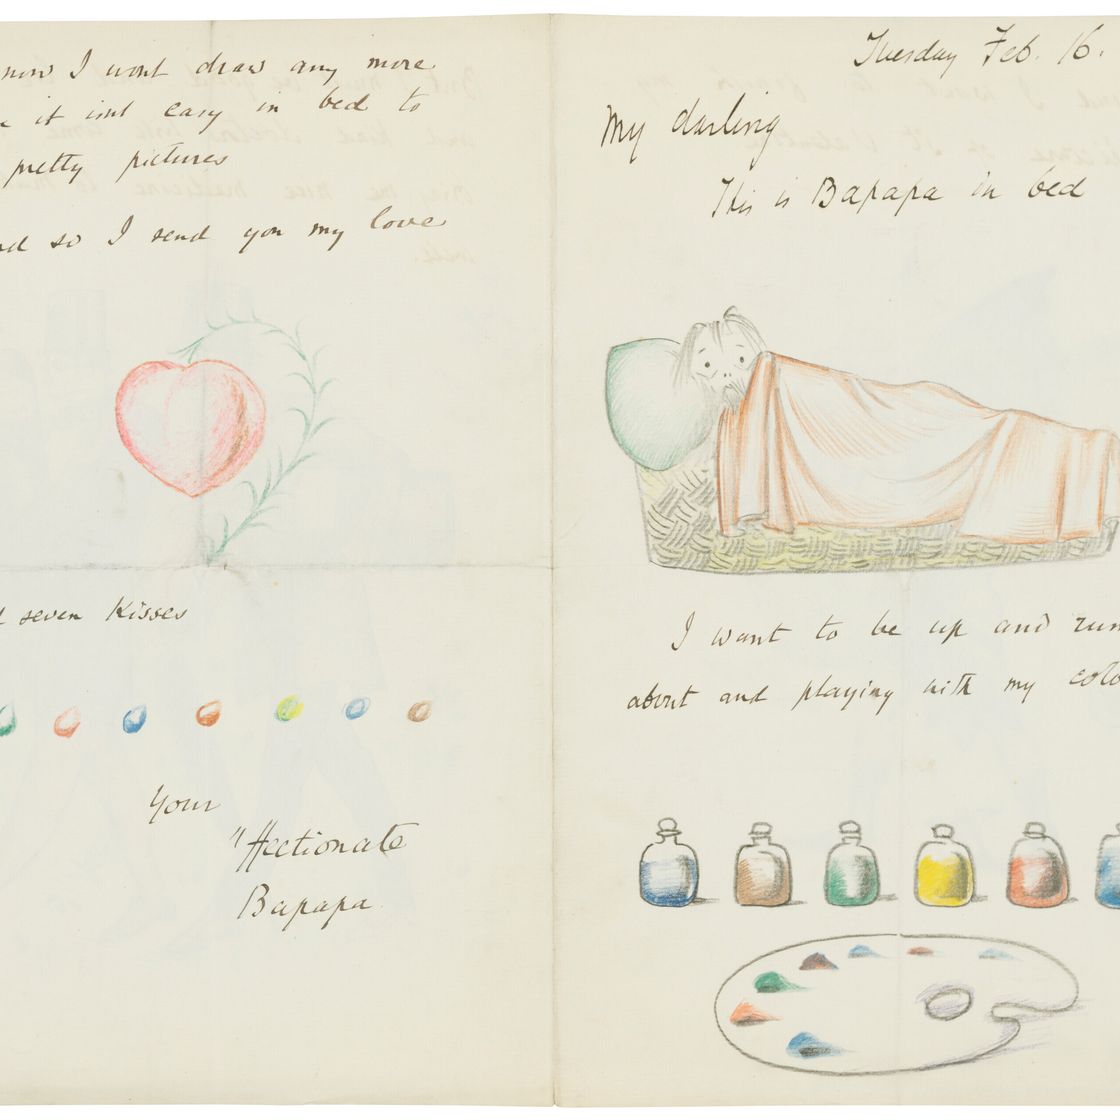 now I wont draw any more
it isnt easy in bed to
pretty pictures
nd so I send you my love
seven Kisses
Your
"ffectionate
Bapapa
Tuesday Feb. 16.
My darling
This is Bapapa in bed
I want to be up and run
about and playing with my colo